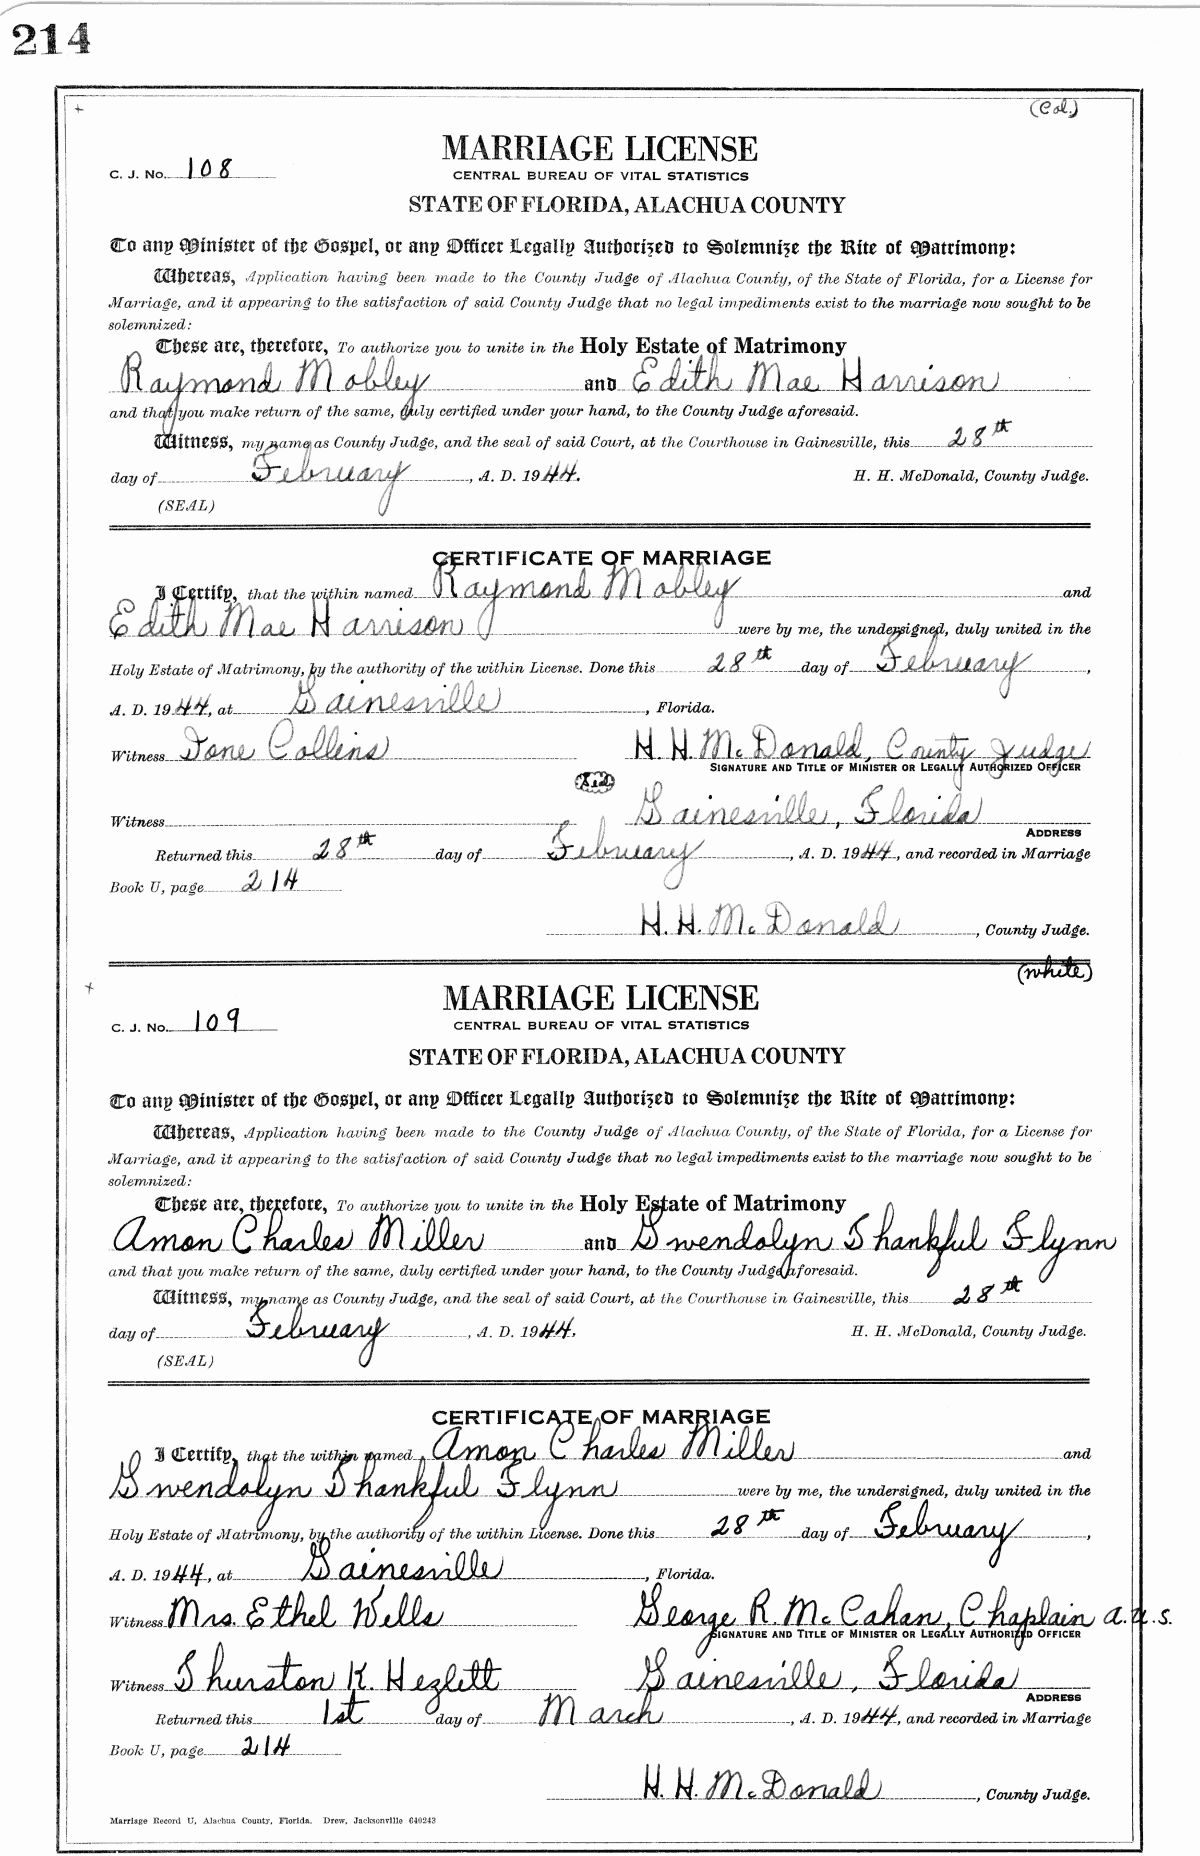 214
(Col.)
MARRIAGE LICENSE
C. J. No. 108
CENTRAL BUREAU OF VITAL STATISTICS
STATE OF FLORIDA, ALACHUA COUNTY
To any Minister of the Gospel, or any Officer Legally Authorized to Solemnize the Rite of Matrimony:
Whereas, Application having been made to the County Judge of Alachua County, of the State of Florida, for a License for
Marriage, and it appearing to the satisfaction of said County Judge that no legal impediments exist to the marriage now sought to be
solemnized:
These are, therefore, To authorize you to unite in the Holy Estate of Matrimony
Raymond Mobley and Edith Mae Harrison
and that you make return of the same, duly certified under your hand, to the County Judge aforesaid.
Witness, my name as County Judge, and the seal of said Court, at the Courthouse in Gainesville, this 28th
day of February, A. D. 1944. H. H. McDonald, County Judge.
(SEAL)
CERTIFICATE OF MARRIAGE
I Certify, that the within named Raymond Mobley and
Edith Mae Harrison were by me, the undersigned, duly united in the
Holy Estate of Matrimony, by the authority of the within License. Done this 28th day of February,
A. D. 1944, at Gainesville, Florida.
Witness Ione Collins H. H. McDonald, County Judge
SIGNATURE AND TITLE OF MINISTER OR LEGALLY AUTHORIZED OFFICER
Witness Gainesville, Florida
ADDRESS
Returned this 28th day of February, A. D. 1944, and recorded in Marriage
Book U, page 214
H. H. McDonald, County Judge.
(white)
MARRIAGE LICENSE
C. J. No. 109
CENTRAL BUREAU OF VITAL STATISTICS
STATE OF FLORIDA, ALACHUA COUNTY
To any Minister of the Gospel, or any Officer Legally Authorized to Solemnize the Rite of Matrimony:
Whereas, Application having been made to the County Judge of Alachua County, of the State of Florida, for a License for
Marriage, and it appearing to the satisfaction of said County Judge that no legal impediments exist to the marriage now sought to be
solemnized:
These are, therefore, To authorize you to unite in the Holy Estate of Matrimony
Amon Charles Miller and Gwendolyn Thankful Flynn
and that you make return of the same, duly certified under your hand, to the County Judge aforesaid.
Witness, my name as County Judge, and the seal of said Court, at the Courthouse in Gainesville, this 28th
day of February, A. D. 1944. H. H. McDonald, County Judge.
(SEAL)
CERTIFICATE OF MARRIAGE
I Certify, that the within named Amon Charles Miller and
Gwendolyn Thankful Flynn were by me, the undersigned, duly united in the
Holy Estate of Matrimony, by the authority of the within License. Done this 28th day of February,
A. D. 1944, at Gainesville, Florida.
Witness Mrs. Ethel Wells George R. McCahan, Chaplain A.U.S.
SIGNATURE AND TITLE OF MINISTER OR LEGALLY AUTHORIZED OFFICER
Witness Thurston K. Hezlett Gainesville, Florida
ADDRESS
Returned this 1st day of March, A. D. 1944, and recorded in Marriage
Book U, page 214
H. H. McDonald, County Judge.
Marriage Record U, Alachua County, Florida. Drew, Jacksonville 640243